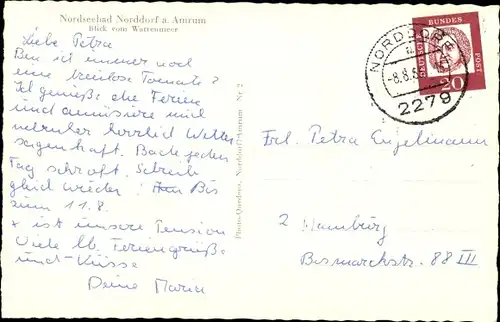 Nordseebad Norddorf a. Amrum
Blick vom Wattenmeer
Liebe Petra
Bin ich immer noch
eine treulose Tomate?
Ich genieße die Ferien
und amüsiere mich
herrlich Wetter
sagenhaft. Bade jeden
Tag Schreib
gleich wieder! Bis
zum 11.8.
x ist unsere Pension
Viele lb. Feriengrüße
und Küsse
Deine Marin
Photo-Quedens, Norddorf/Amrum Nr 2
NORDDORF
-8.8.6
2279
DEUTSCHE BUNDESPOST
20
Frl. Petra Engelmann
2 Hamburg
Bismarckstr. 88 III